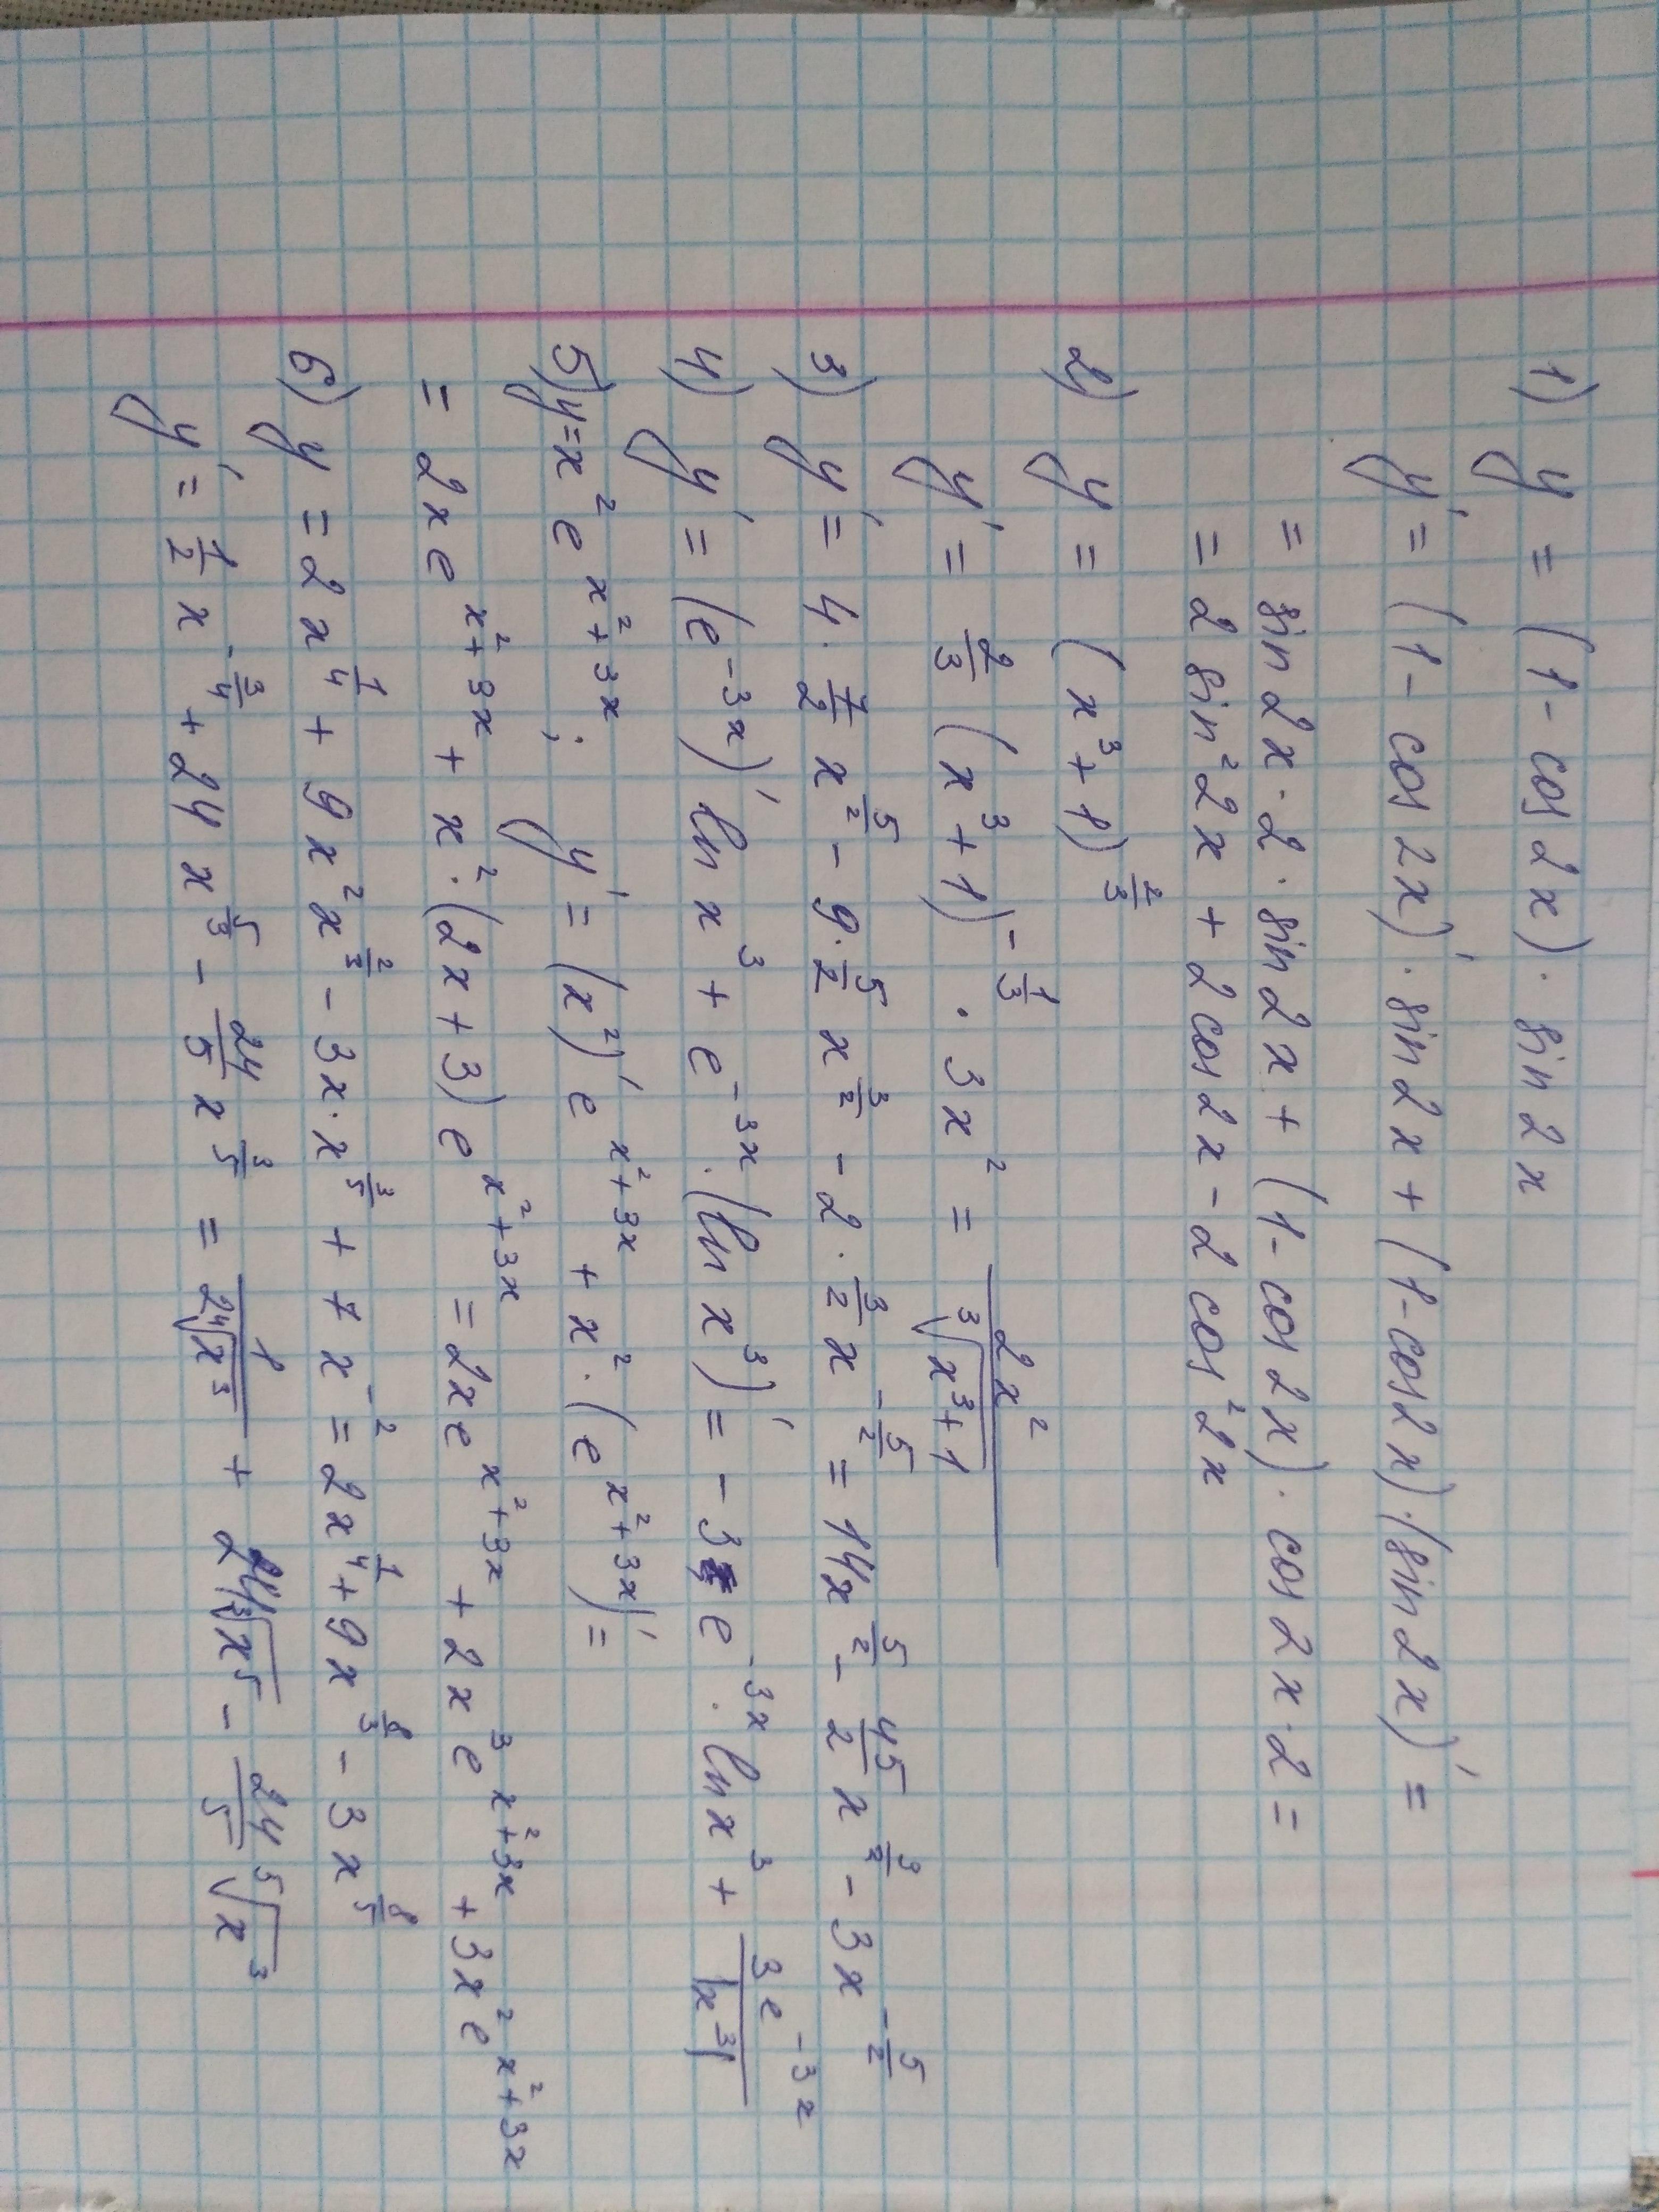 1) y = (1 - cos 2x) · sin 2x
y' = (1 - cos 2x)' · sin 2x + (1 - cos 2x) · (sin 2x)' =
= sin 2x · 2 · sin 2x + (1 - cos 2x) · cos 2x · 2 =
= 2 sin² 2x + 2 cos 2x - 2 cos² 2x
2) y = (x³ + 1)^(2/3)
y' = 2/3 (x³ + 1)^(-1/3) · 3x² = 2x² / ∛(x³ + 1)
3) y' = 4 · 7/2 x^(5/2) - 9 · 5/2 x^(3/2) - 2 · 3/2 x^(-5/2) = 14x^(5/2) - 45/2 x^(3/2) - 3x^(-5/2)
4) y' = (e^(-3x))' ln x³ + e^(-3x) · (ln x³)' = -3 e^(-3x) · ln x³ + 3e^(-3x) / |x³|
5) y = x² e^(x²+3x) ; y' = (x²)' e^(x²+3x) + x² · (e^(x²+3x))' =
= 2x e^(x²+3x) + x² · (2x + 3) e^(x²+3x) = 2x e^(x²+3x) + 2x e³ ^(x²+3x) + 3x e² ^(x²+3x)
6) y = 2x^(1/4) + 9x² x^(2/3) - 3x · x^(3/5) + 7x^(-2) = 2x^(1/4) + 9x^(8/3) - 3x^(8/5)
y' = 1/2 x^(-3/4) + 24x^(5/3) - 24/5 x^(3/5) = 1 / 2⁴√x³ + 24 ∛x⁵ - 24/5 ⁵√x³